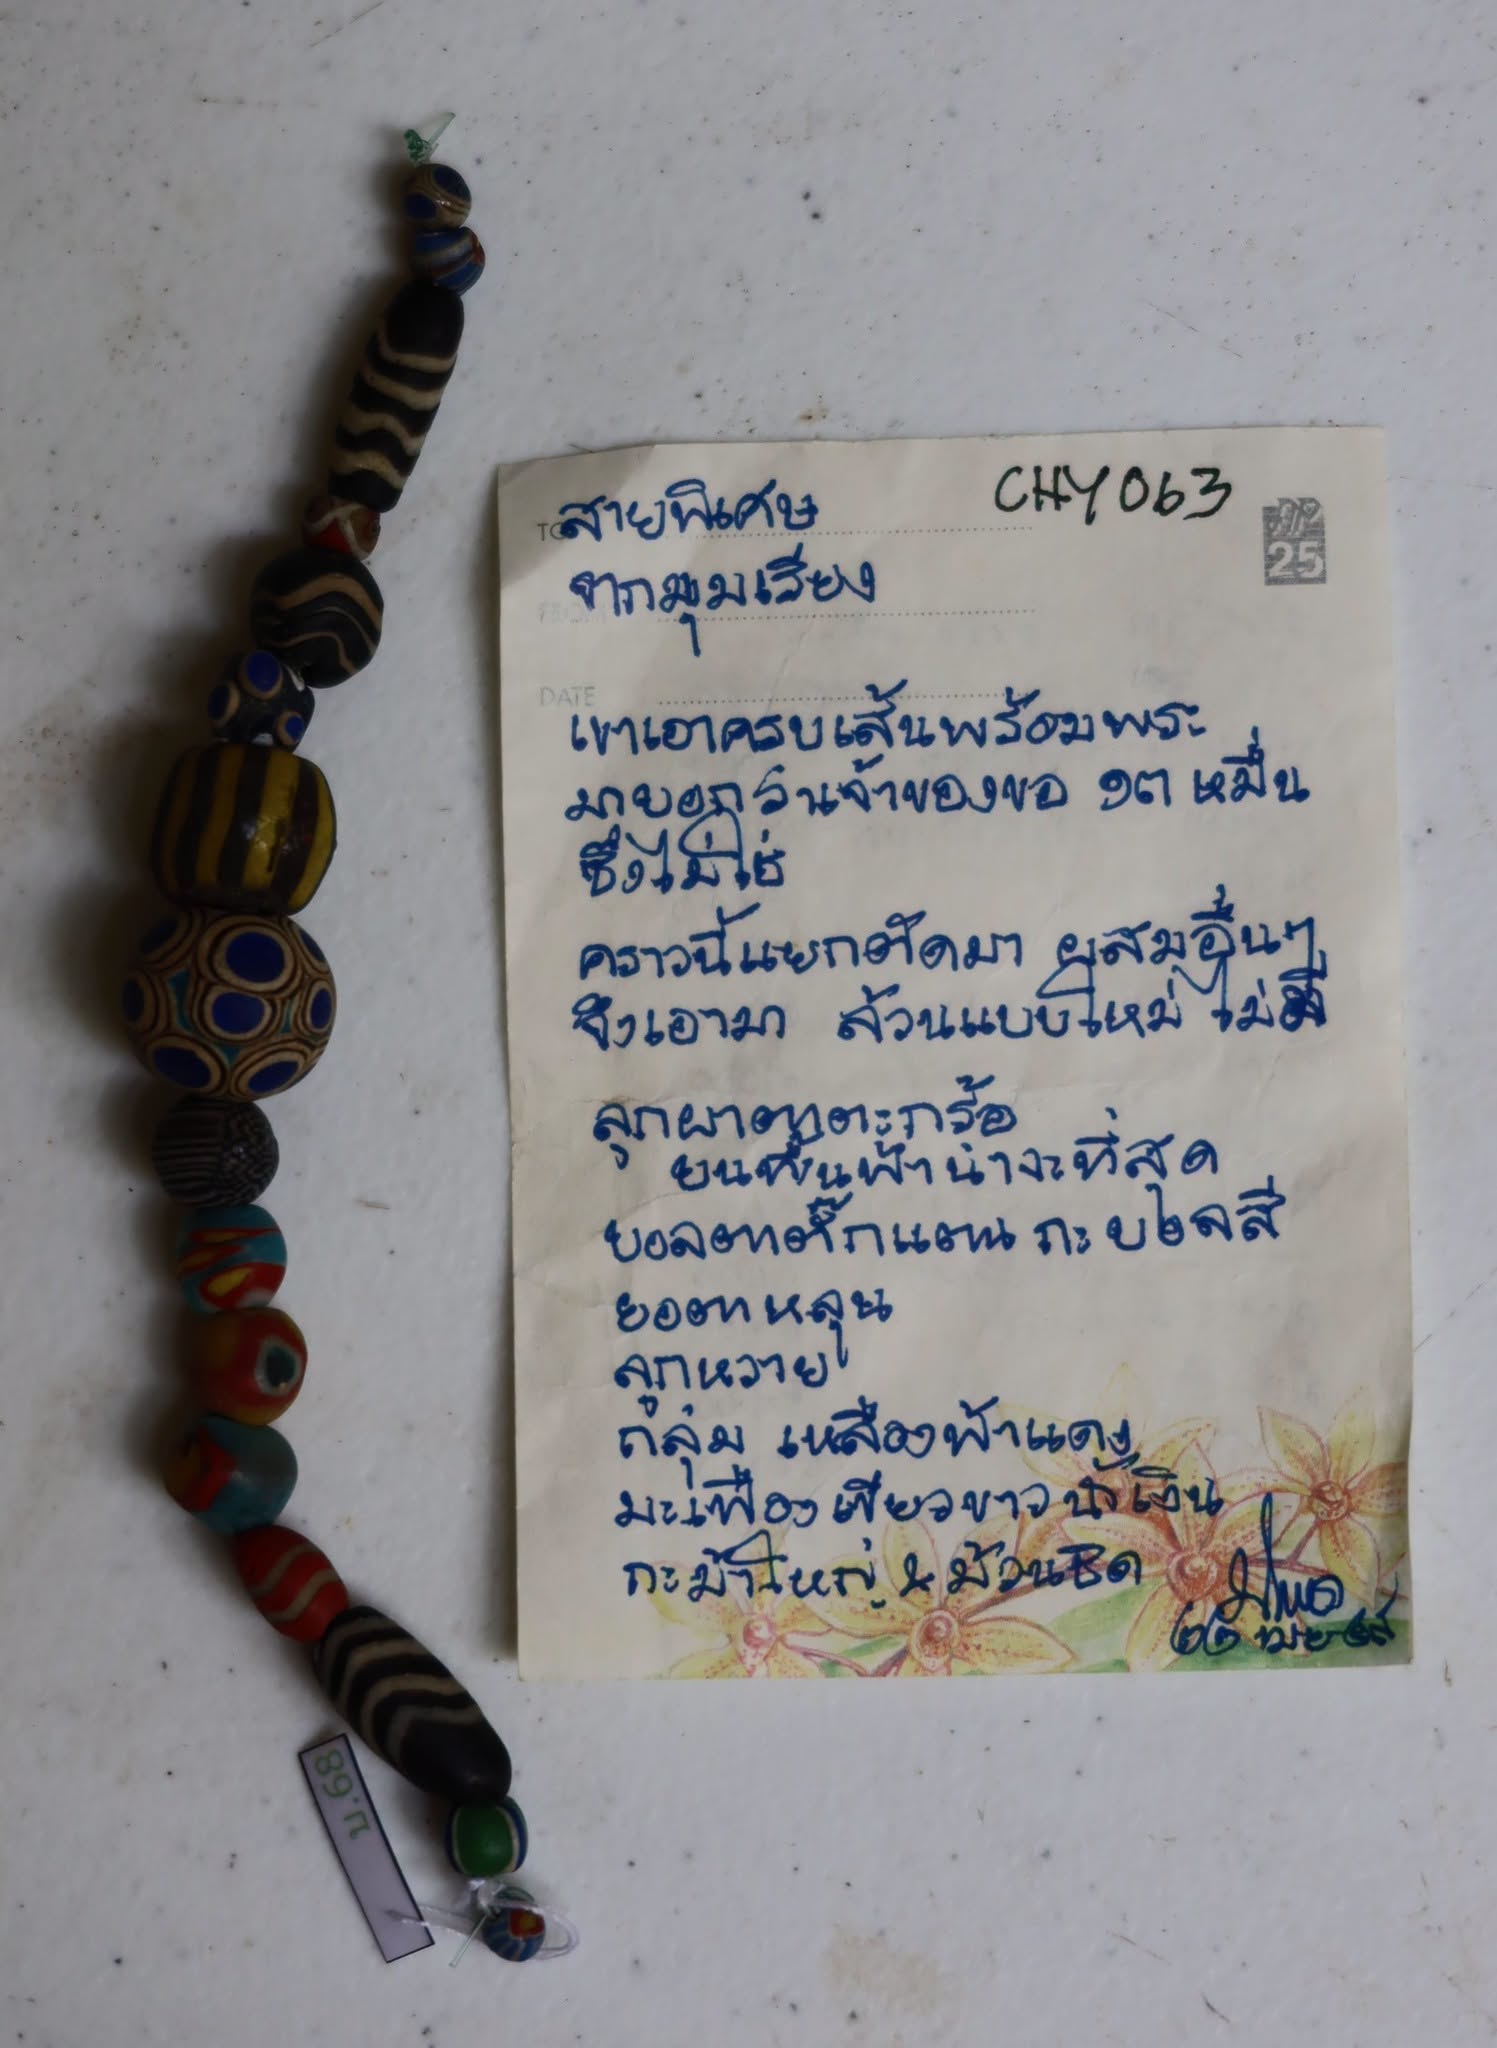 CHY 063
สายพิเศษ
จากมุมเรียง
TO
FROM
DATE
25
เขาเอาครบเส้นพร้อมพระ
มาบอกว่าเจ้าของขอ ๑๓ หมื่น
ซึ่งไม่ใช่
คราวนี้แยกตัดมา ผสมอื่นๆ
จึงเอามา ล้วนแบบใหม่ ไม่มี
ลูกผาตาตะกร้อ
บนพื้นฟ้าน่าจะที่สุด
ยอตาหลุม
ลูกหวาย
กลุ่ม เหลืองฟ้าแดง
มะเฟืองเขียวขาวน้ำเงิน
๒๒ เมย
น.68